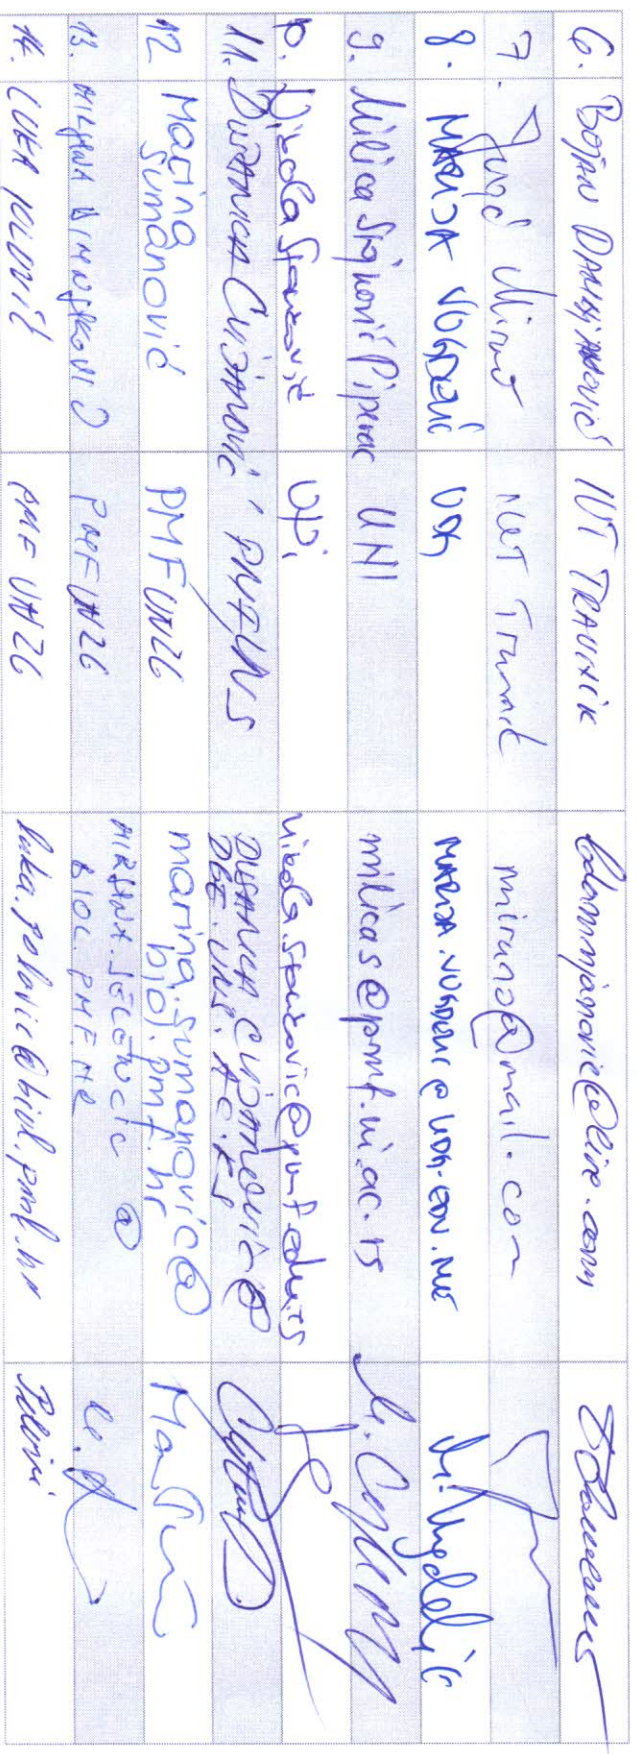 6. BOJAN DAMJANOVIĆ IUT TRAVNIK bdamnjanovic@live.com
7. Jugić Mirno IUT Travnik miruno@mail.com
8. MARIJA VUGDELIĆ UDG MARIJA.VUGDELIC@UDG.EDU.ME M. Vugdelić
9. Milica Stojković Piperac UNI milicas@pmf.ni.ac.rs
10. Nikola Stanković UPi nikola.stankovic@pmf.edu.rs
11. DUŠANICA CVIJANOVIĆ PMFUNS DUSANICA.CVIJANOVIC@
DBE.UNS.AC.RS
12 Marina
Šumanović PMF UNZG marina.sumanovic@
biol.pmf.hr
13. PMF UNZG
BIOL.PMF.HR
14. LUKA POLOVIĆ PMF UNZG luka.polovic@biol.pmf.hr Polović